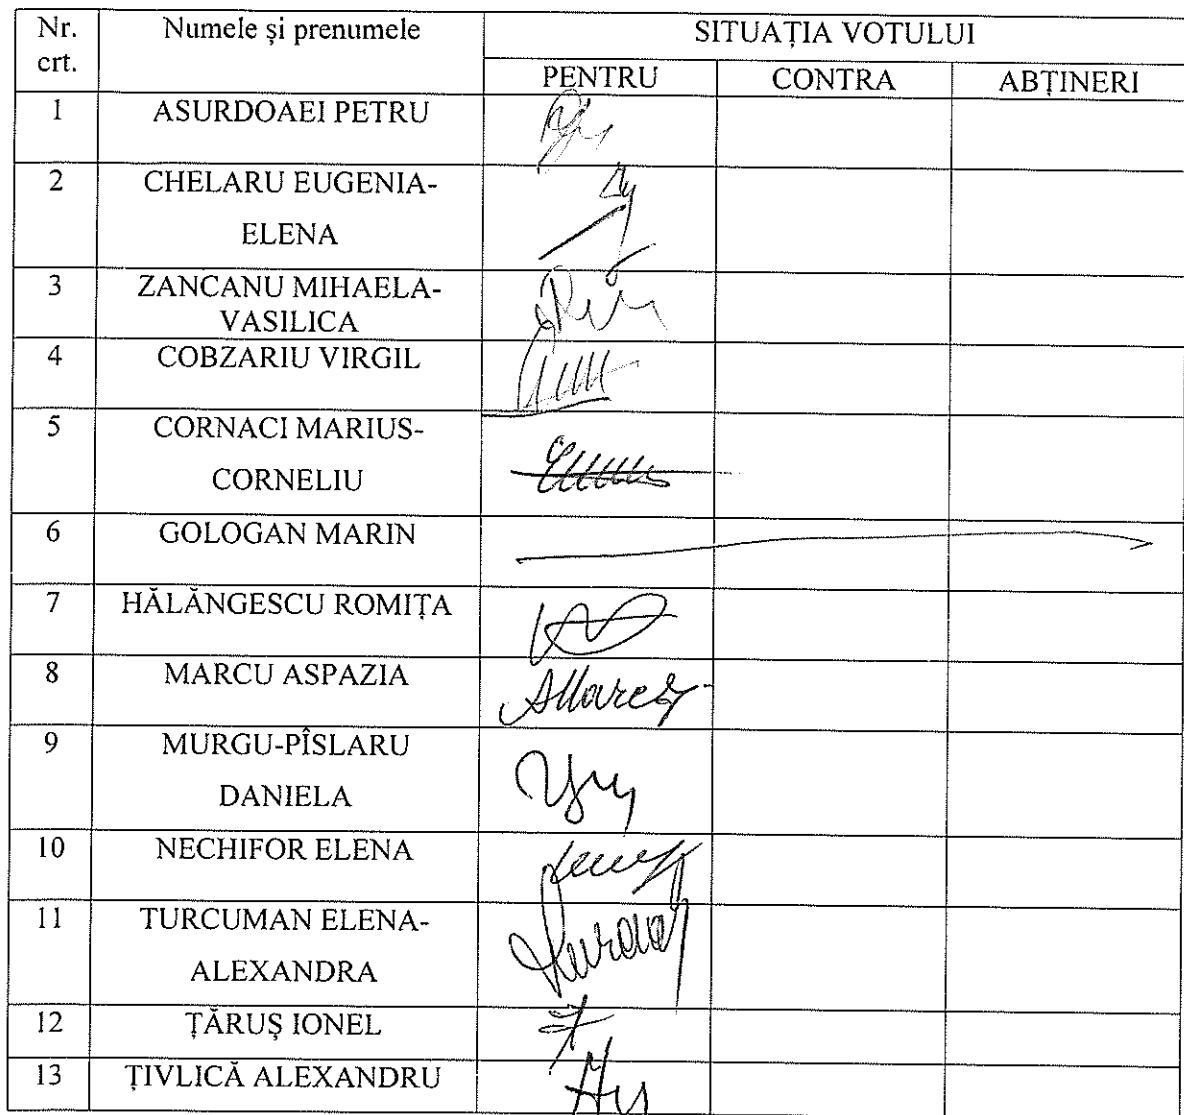 Nr. crt.
Numele și prenumele
SITUAȚIA VOTULUI
PENTRU
CONTRA
ABȚINERI
1
ASURDOAEI PETRU
2
CHELARU EUGENIA-
ELENA
3
ZANCANU MIHAELA-
VASILICA
4
COBZARIU VIRGIL
5
CORNACI MARIUS-
CORNELIU
6
GOLOGAN MARIN
7
HĂLĂNGESCU ROMIȚA
8
MARCU ASPAZIA
9
MURGU-PÎSLARU
DANIELA
10
NECHIFOR ELENA
11
TURCUMAN ELENA-
ALEXANDRA
12
ȚĂRUȘ IONEL
13
ȚIVLICĂ ALEXANDRU